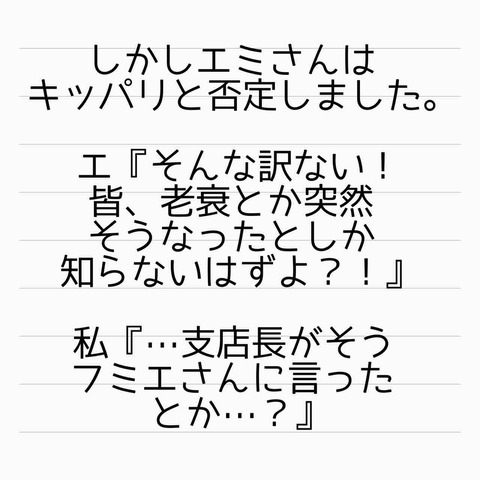 しかしエミさんは
キッパリと否定しました。
エ『そんな訳ない！
皆、老衰とか突然
そうなったとしか
知らないはずよ？！』
私『…支店長がそう
フミエさんに言った
とか…？』